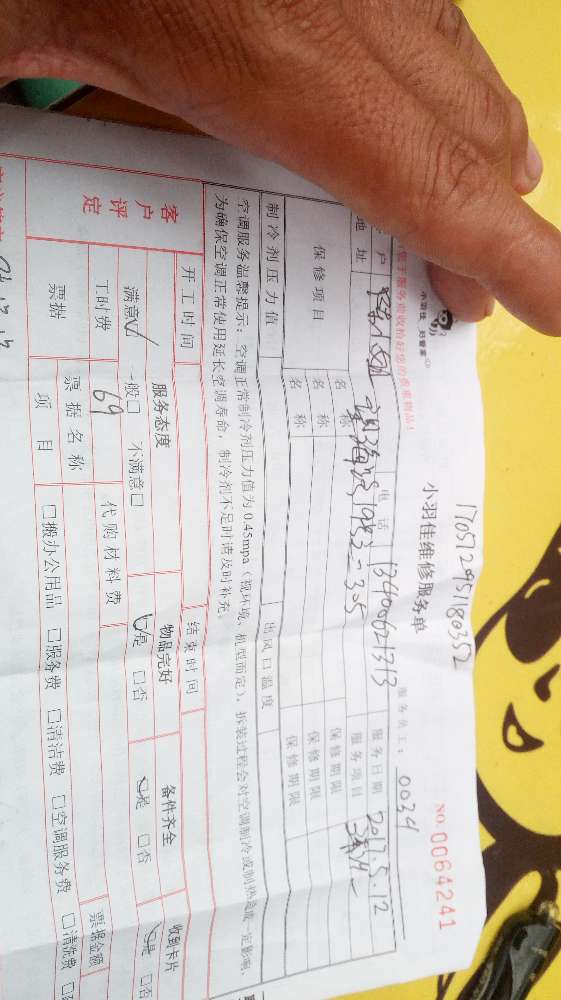 170512951180352
小羽佳 刘管家
小羽佳维修服务单
NO.0064241
服务员工：0034
户 电话 13400621313 服务日期 2017.5.12
地址 1982-305 服务项目
保修项目 名称 保修期限
名称 保修期限
名称 保修期限
制冷剂压力值 出风口温度
空调服务温馨提示：空调正常制冷剂压力值为0.45mpa（视环境、机型而定），拆装过程会对空调制冷或制热造成一定影响，
为确保空调正常使用延长空调寿命，制冷剂不足时请及时补充。
开工时间 结束时间
客户评定 服务态度 物品完好 备件齐全 收到卡片
满意☑ 一般□ 不满意□ ☑是 □否 ☑是 □否 ☑是 □否
工时费 69 代购材料费
票据 票据名称 票据金额
项目 □搬办公用品 □服务费 □清洁费 □空调服务费 □清洗费